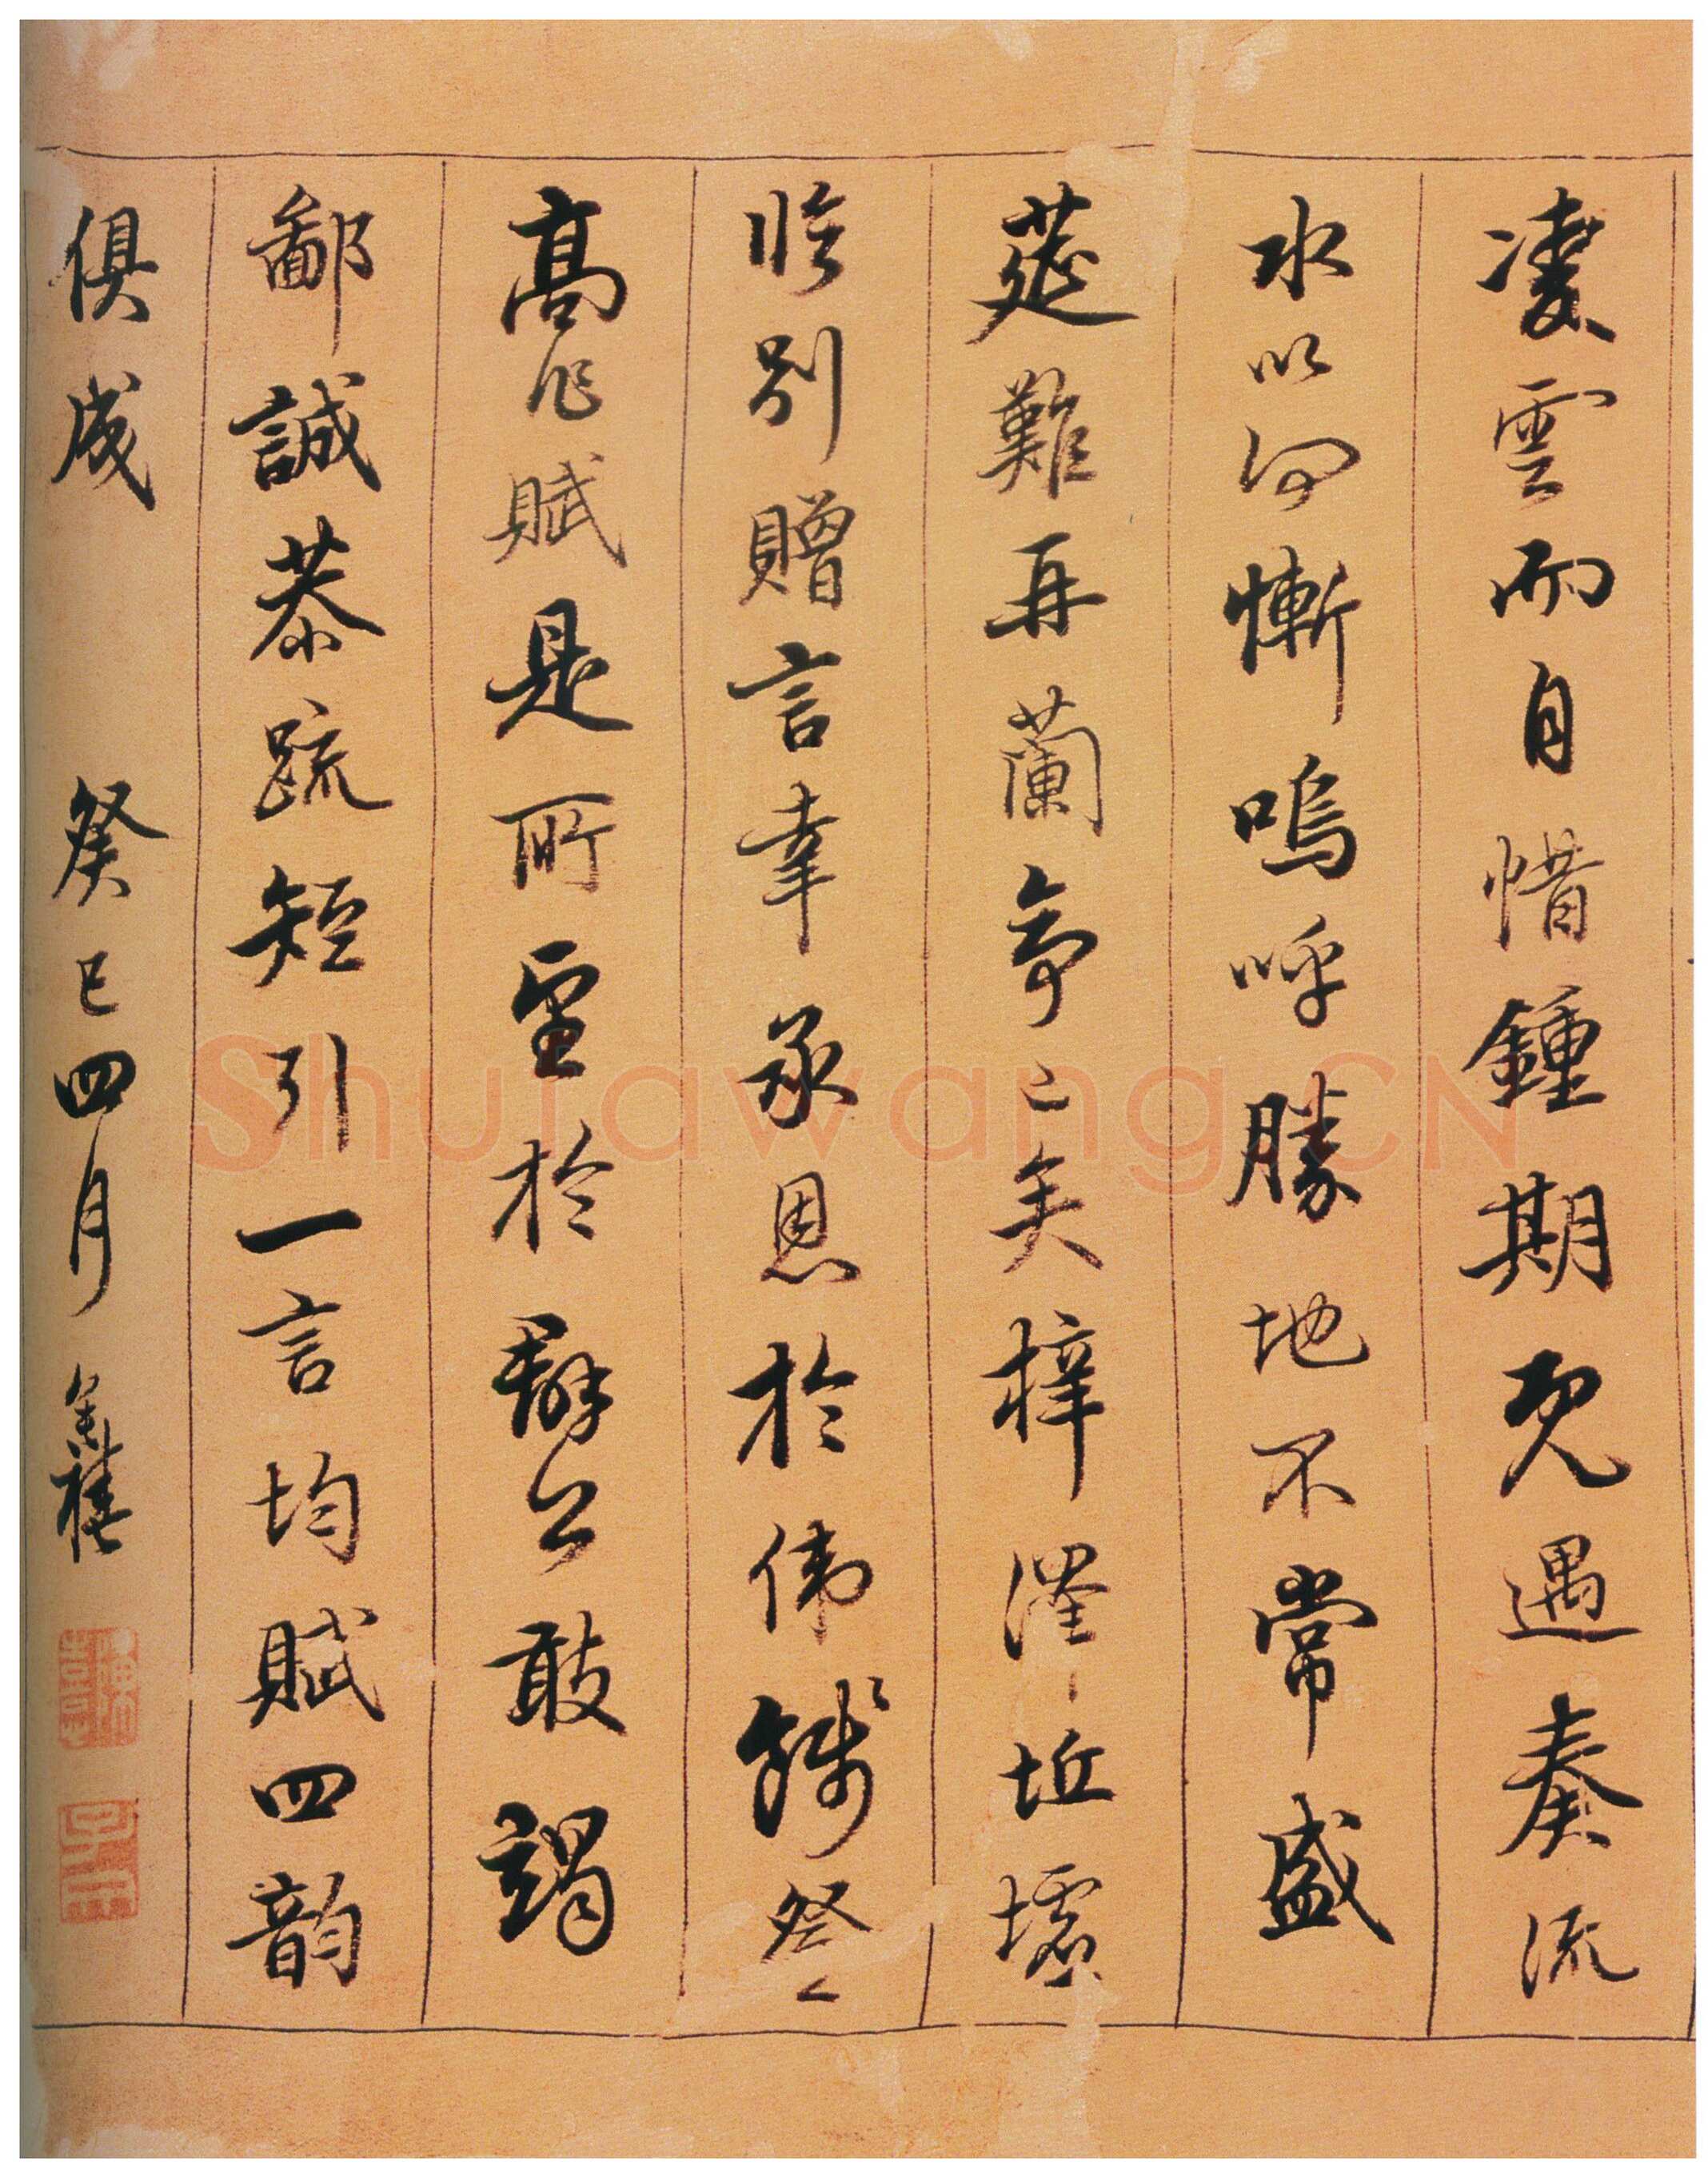 凌雲而自惜鍾期既遇奏流
水以何慚嗚呼勝地不常盛
莚難再蘭亭已矣梓澤坵墟
臨別贈言幸承恩於偉餞登
高作賦是所望於群公敢竭
鄙誠恭疏短引一言均賦四韵
俱成 癸巳四月
Shufawang.CN